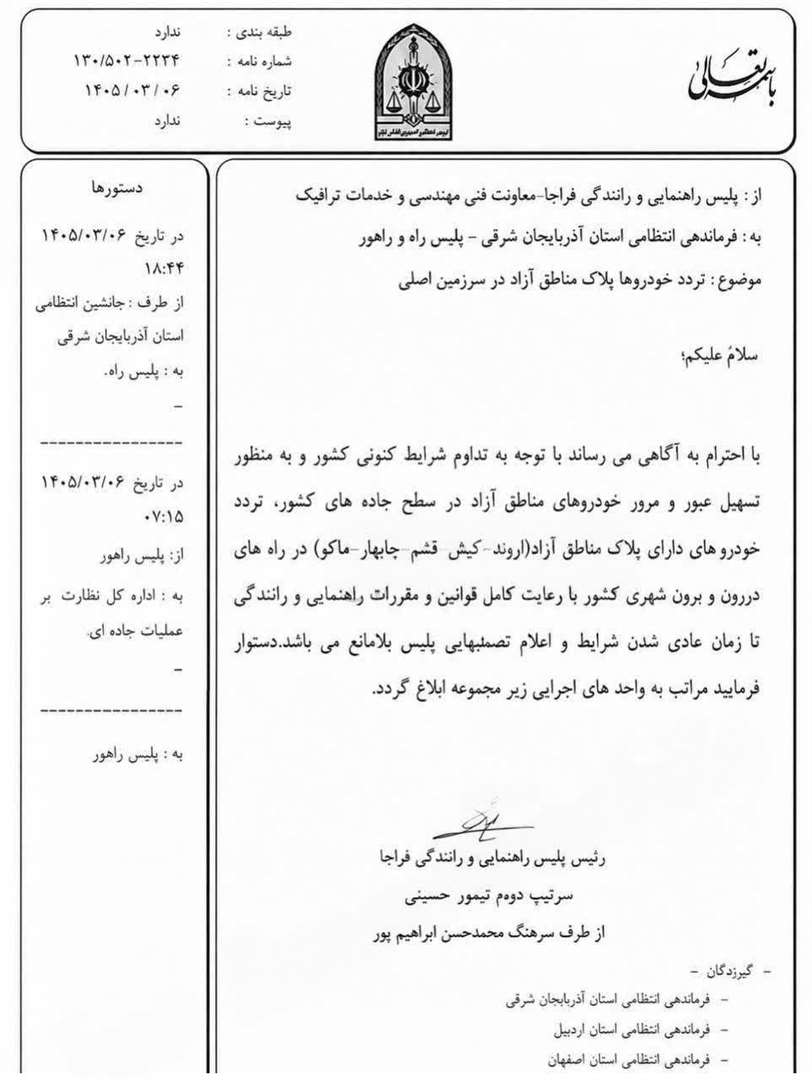 باسمه تعالی
طبقه بندی : ندارد
شماره نامه : ۱۳۰/۵۰۲-۲۲۳۴
تاریخ نامه : ۱۴۰۵/۰۳/۰۶
پیوست : ندارد
از : پلیس راهنمایی و رانندگی فراجا-معاونت فنی مهندسی و خدمات ترافیک
به : فرماندهی انتظامی استان آذربایجان شرقی – پلیس راه و راهور
موضوع : تردد خودروها پلاک مناطق آزاد در سرزمین اصلی
سلامٌ علیکم؛
با احترام به آگاهی می رساند با توجه به تداوم شرایط کنونی کشور و به منظور
تسهیل عبور و مرور خودروهای مناطق آزاد در سطح جاده های کشور، تردد
خودرو های دارای پلاک مناطق آزاد(اروند-کیش-قشم-چابهار-ماکو) در راه های
دررون و برون شهری کشور با رعایت کامل قوانین و مقررات راهنمایی و رانندگی
تا زمان عادی شدن شرایط و اعلام تصمبهایی پلیس بلامانع می باشد.دستوار
فرمایید مراتب به واحد های اجرایی زیر مجموعه ابلاغ گردد.
رئیس پلیس راهنمایی و رانندگی فراجا
سرتیپ دووم تیمور حسینی
از طرف سرهنگ محمدحسن ابراهیم پور
- گیرزدگان -
- فرماندهی انتظامی استان آذربابجان شرقی
- فرماندهی انتظامی استان اردبیل
- فرماندهی انتظامی استان اصفهان
دستورها
در تاریخ ۱۴۰۵/۰۳/۰۶
۱۸:۴۴
از طرف : جانشین انتظامی
استان آذربایجان شرقی
به : پلیس راه.
–
----------------
در تاریخ ۱۴۰۵/۰۳/۰۶
۰۷:۱۵
از: پلیس راهور
به : اداره کل نظارت بر
عملیات جاده ای.
–
----------------
به : پلیس راهور